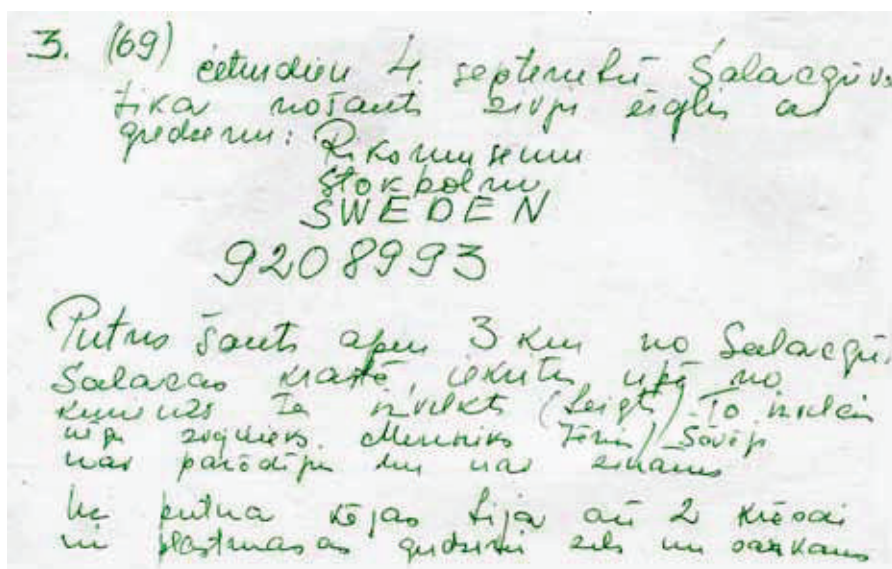 3. (69)
ceturdien 4. septembrī Salacgrīvā
tika nošauts zivju ērglis ar
gredzenu: Riksmuseum
Stokholm
SWEDEN
9208993
Putns šauts apm 3 km no Salacgr.
Salacas krastā, iekritis upē no
kurienes ta izvilkts (beigts) To izvilcis
zvejnieks.
nav parādījies un nav zināms
Uz putna kājas bija arī 2 krāsaini
plastmasas gredzeni zils un sarkans